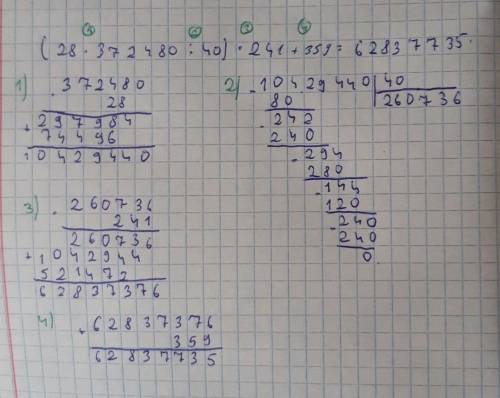 (28 · 372480 : 40) · 241 + 359 = 62837735.
1)
372480
28
+ 297984
74496
10429440
2)
- 10429440 | 40
80
260736
- 242
240
- 294
280
- 144
120
- 240
240
0
3)
. 260736
241
260736
+ 1042944
521472
62837376
4)
+ 62837376
359
62837735